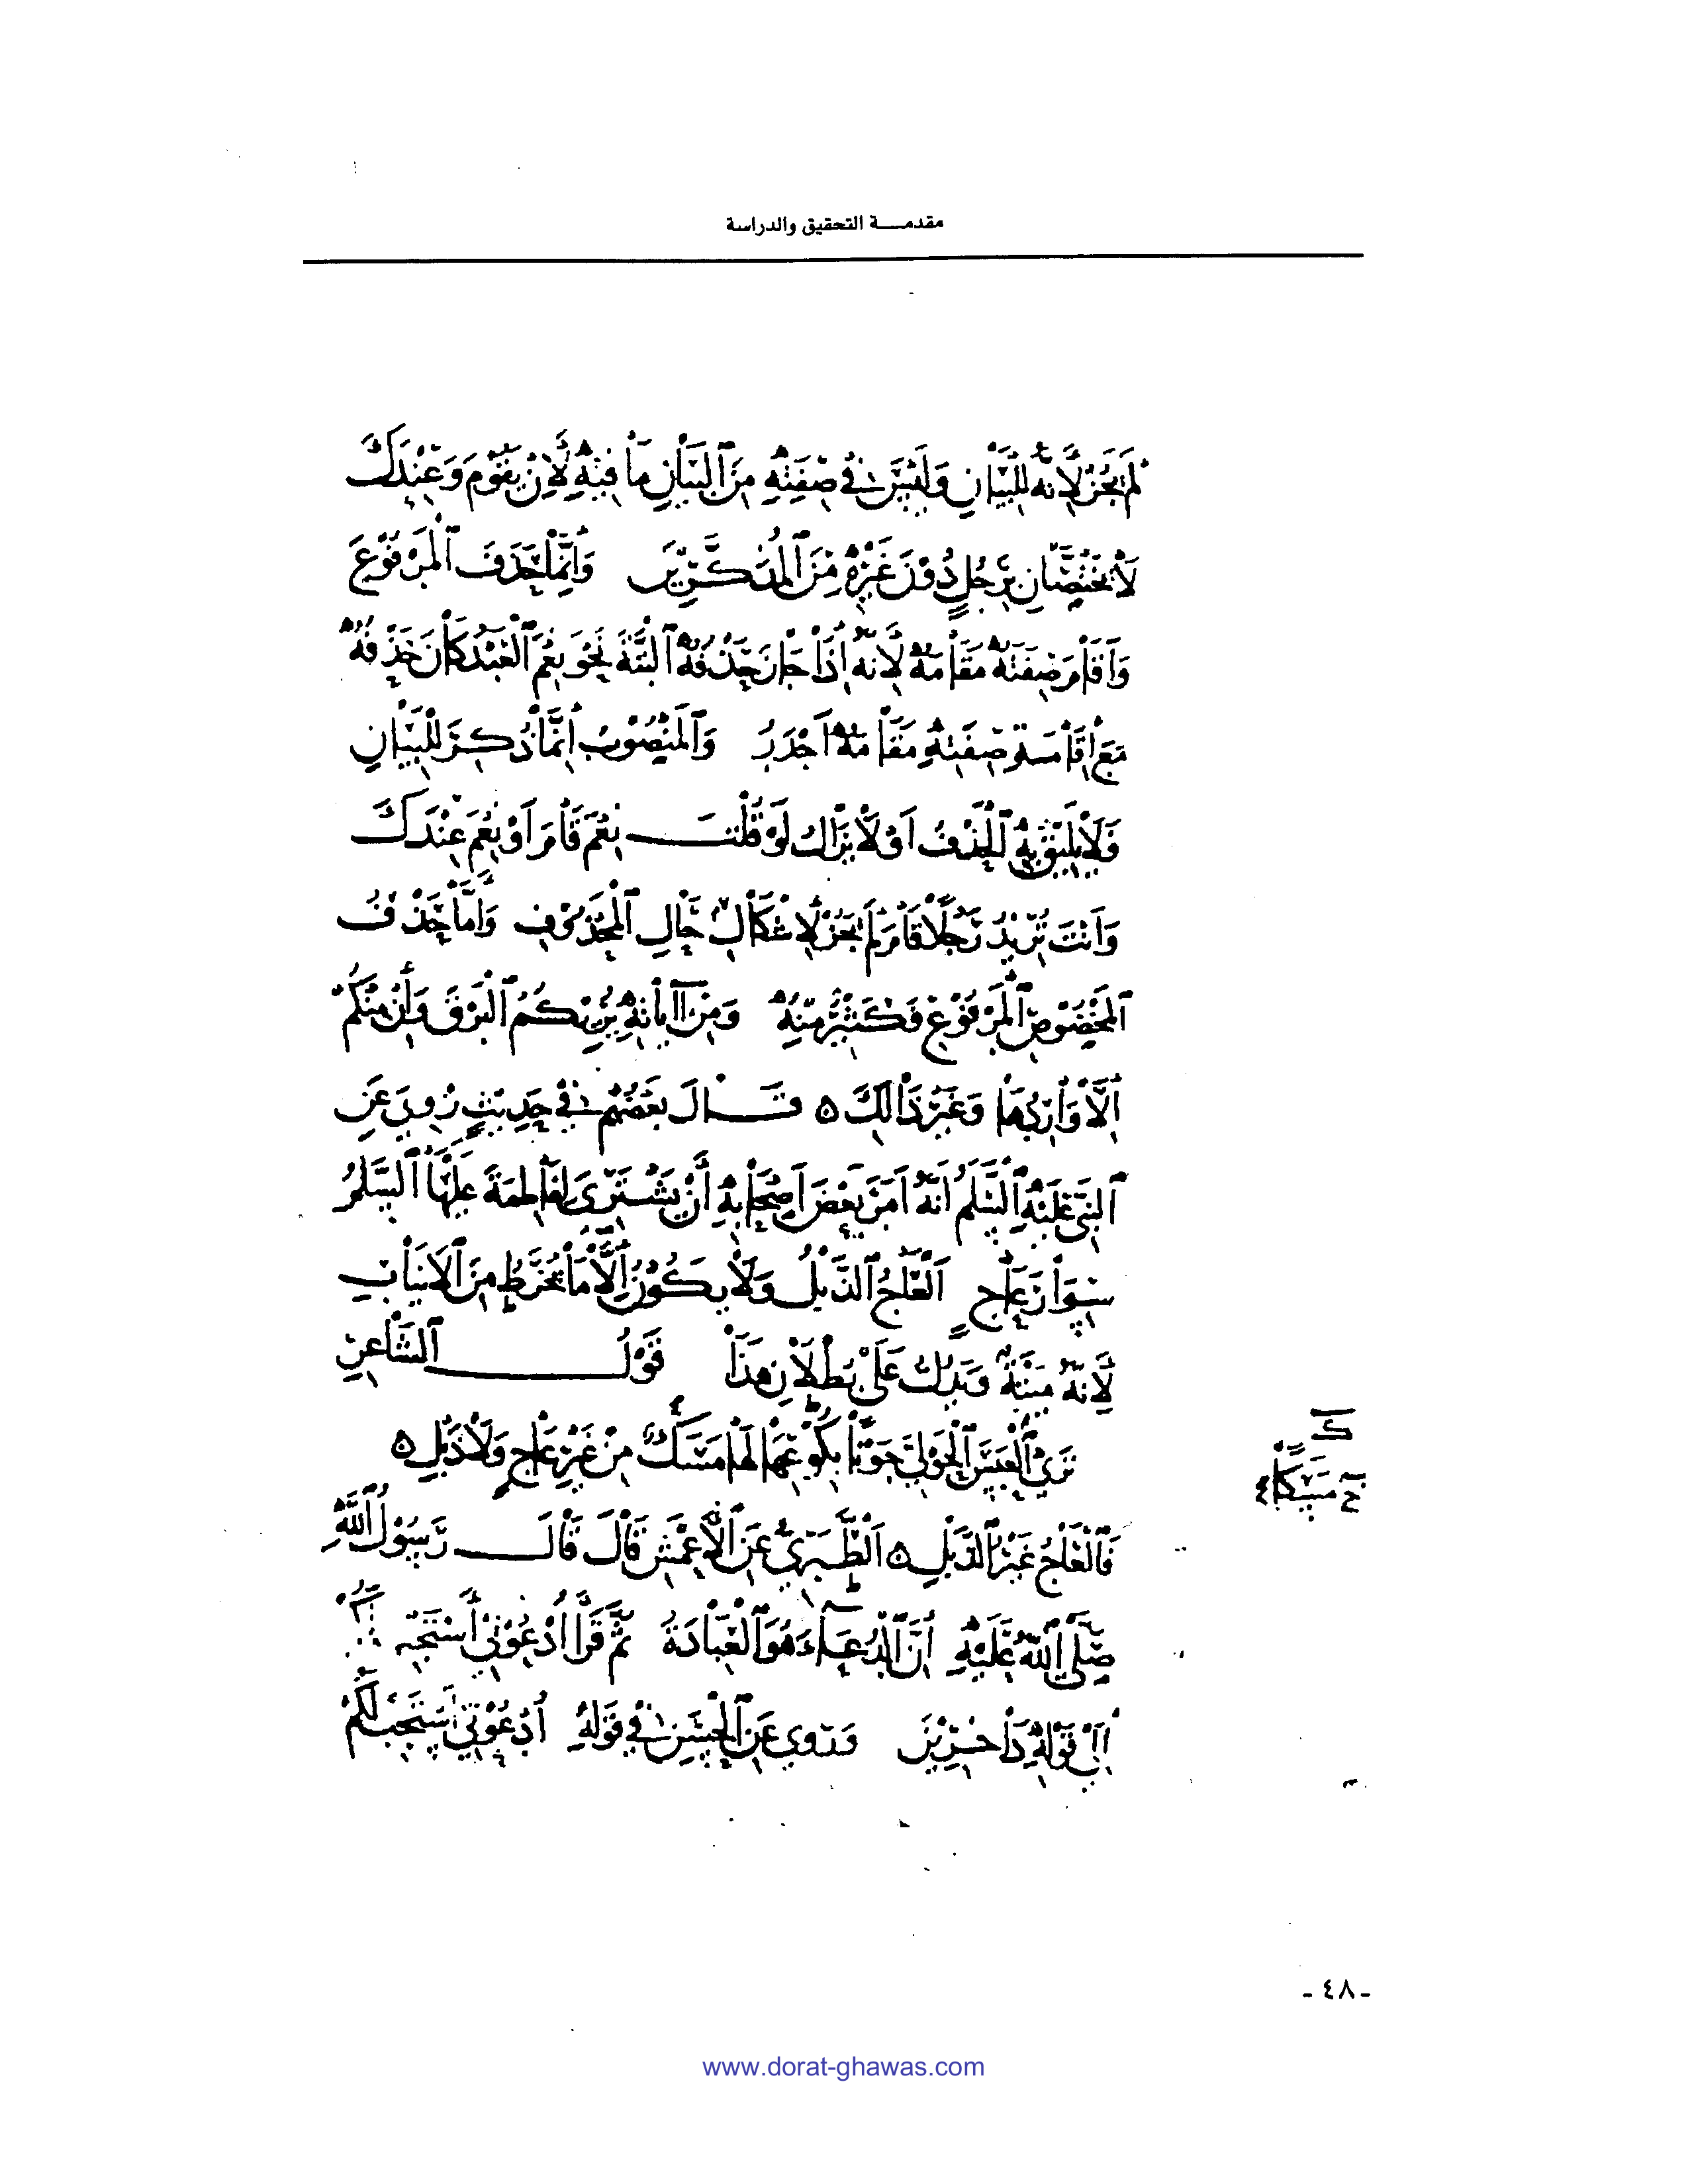 مقدمـــة التحقيق والدراسة
لَمْ يَجُزْ لِأَنَّهُ لِلْبَيَانِ وَلَيْسَ فِي صِفَتِهِ مِنَ الْبَيَانِ مَا فِيهِ لِأَنَّ يَقُومَ وَعِنْدَكَ
لَا يَخْتَصَّانِ بِرَجُلٍ دُونَ غَيْرِهِ مِنَ الْمُذَكَّرِينَ وَإِنَّمَا حَذَفَ الْمَرْفُوعَ
وَأَقَامَ صِفَتَهُ مَقَامَهُ لِأَنَّهُ إِذَا جَازَ حَذْفُهُ الْبَتَّةَ نَحْوَ نِعْمَ الْعَبْدُ كَانَ حَذْفُهُ
مَعَ إِقَامَةِ صِفَتِهِ مَقَامَهُ أَجْدَرَ وَالْمَنْصُوبُ إِنَّمَا ذُكِرَ لِلْبَيَانِ
وَلَا يَلِيقُ بِهِ الْحَذْفُ أَوَلَا تَرَاكَ لَوْ قُلْتَ نِعْمَ قَامَ أَوْ نِعْمَ عِنْدَكَ
وَأَنْتَ تُرِيدُ رَجُلًا قَامَ لَمْ يَجُزْ لِإِشْكَالِ حَالِ الْمَحْذُوفِ وَأَمَّا حَذْفُ
الْمَخْصُوصِ الْمَرْفُوعِ فَكَثِيرٌ مِنْهُ وَمِنْ آيَاتِهِ يُرِيكُمُ الْبَرْقَ وَأَنْ مِنْكُمْ
إِلَّا وَارِدُهَا وَغَيْرُ ذَلِكَ ۵ قَالَ بَعْضُهُمْ فِي حَدِيثٍ رُوِيَ عَنِ
النَّبِيِّ عَلَيْهِ السَّلَمُ أَنَّهُ أَمَرَ بَعْضَ أَصْحَابِهِ أَنْ يَشْتَرِيَ لِفَاطِمَةَ عَلَيْهَا السَّلَمُ
سِوَارَ عَاجٍ الْعَاجُ الذَّبْلُ وَلَا يَكُونُ إِلَّا مَا يُخْرَطُ مِنَ الْأَنْيَابِ
لِأَنَّهُ مَيْتَةٌ وَيَدُلُّكَ عَلَى بُطْلَانِ هَذَا قَوْلُ الشَّاعِرِ
تَرَى الْعَبَسَ الْحَوْلِيَّ جَوْنًا بِكُوعِهَا لَهَا مَسَكٌ مِنْ غَيْرِ عَاجٍ وَلَا ذَبْلِ ۵
ح مَسَكًا
فَالْعَاجُ غَيْرُ الذَّبْلِ ۵ الطَّبَرِيُّ عَنِ الْأَعْمَشِ قَالَ قَالَ رَسُولُ اللَّهِ
صَلَّى اللَّهُ عَلَيْهِ إِنَّ الدُّعَاءَ هُوَ الْعِبَادَةُ ثُمَّ قَرَأَ ادْعُونِي أَسْتَجِبْ
إِلَى قَوْلِهِ دَاخِرِينَ وَرَوَى عَنِ الْحَسَنِ فِي قَوْلِهِ ادْعُونِي أَسْتَجِبْ لَكُمْ
- ٤٨ -
www.dorat-ghawas.com